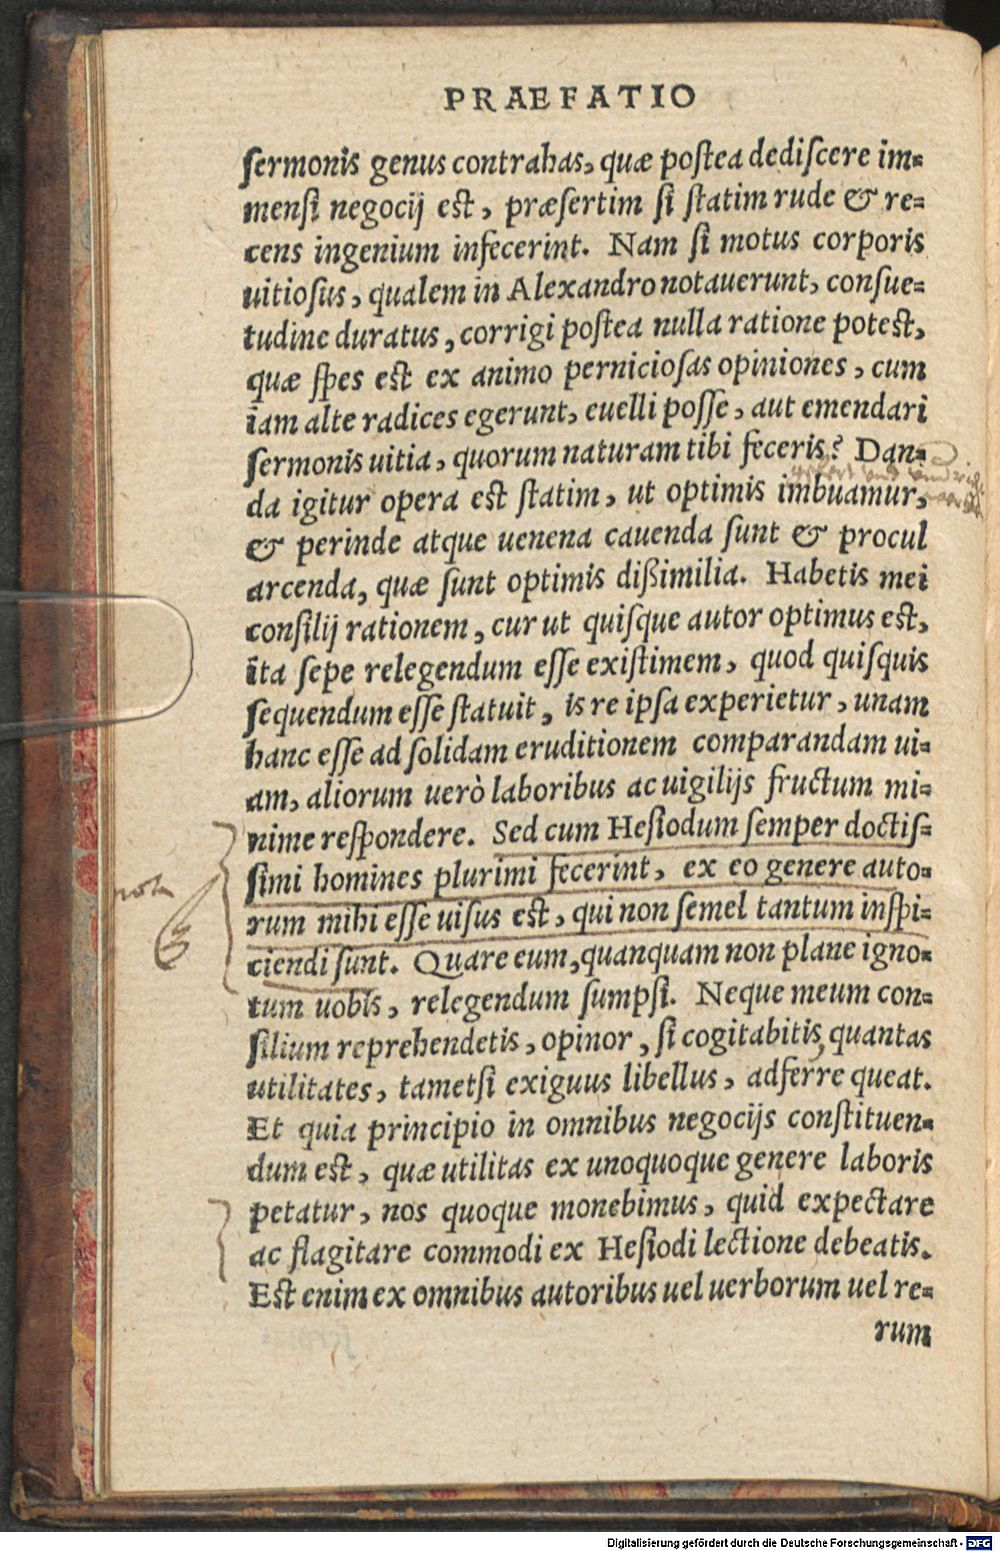 PRAEFATIO
sermonis genus contrahas, quæ postea dediscere im-
mensi negocij est, præsertim si statim rude & re-
cens ingenium infecerint. Nam si motus corporis
uitiosus, qualem in Alexandro notauerunt, consue-
tudine duratus, corrigi postea nulla ratione potest,
quæ spes est ex animo perniciosas opiniones, cum
iam alte radices egerunt, euelli posse, aut emendari
sermonis uitia, quorum naturam tibi feceris? Dan-
da igitur opera est statim, ut optimis imbuamur,
& perinde atque uenena cauenda sunt & procul
arcenda, quæ sunt optimis dißimilia. Habetis mei
consilij rationem, cur ut quisque autor optimus est,
ita sepe relegendum esse existimem, quod quisquis
sequendum esse statuit, is re ipsa experietur, unam
hanc esse ad solidam eruditionem comparandam ui-
am, aliorum uerò laboribus ac uigilijs fructum mi-
nime respondere. Sed cum Hesiodum semper doctis-
simi homines plurimi fecerint, ex eo genere auto-
nota
rum mihi esse uisus est, qui non semel tantum inspi-
ciendi sunt. Quare eum, quanquam non plane igno-
tum uobis, relegendum sumpsi. Neque meum con-
silium reprehendetis, opinor, si cogitabitis, quantas
utilitates, tametsi exiguus libellus, adferre queat.
Et quia principio in omnibus negocijs constituen-
dum est, quæ utilitas ex unoquoque genere laboris
petatur, nos quoque monebimus, quid expectare
ac flagitare commodi ex Hesiodi lectione debeatis.
Est enim ex omnibus autoribus uel uerborum uel re-
rum
Digitalisierung gefördert durch die Deutsche Forschungsgemeinschaft - DFG